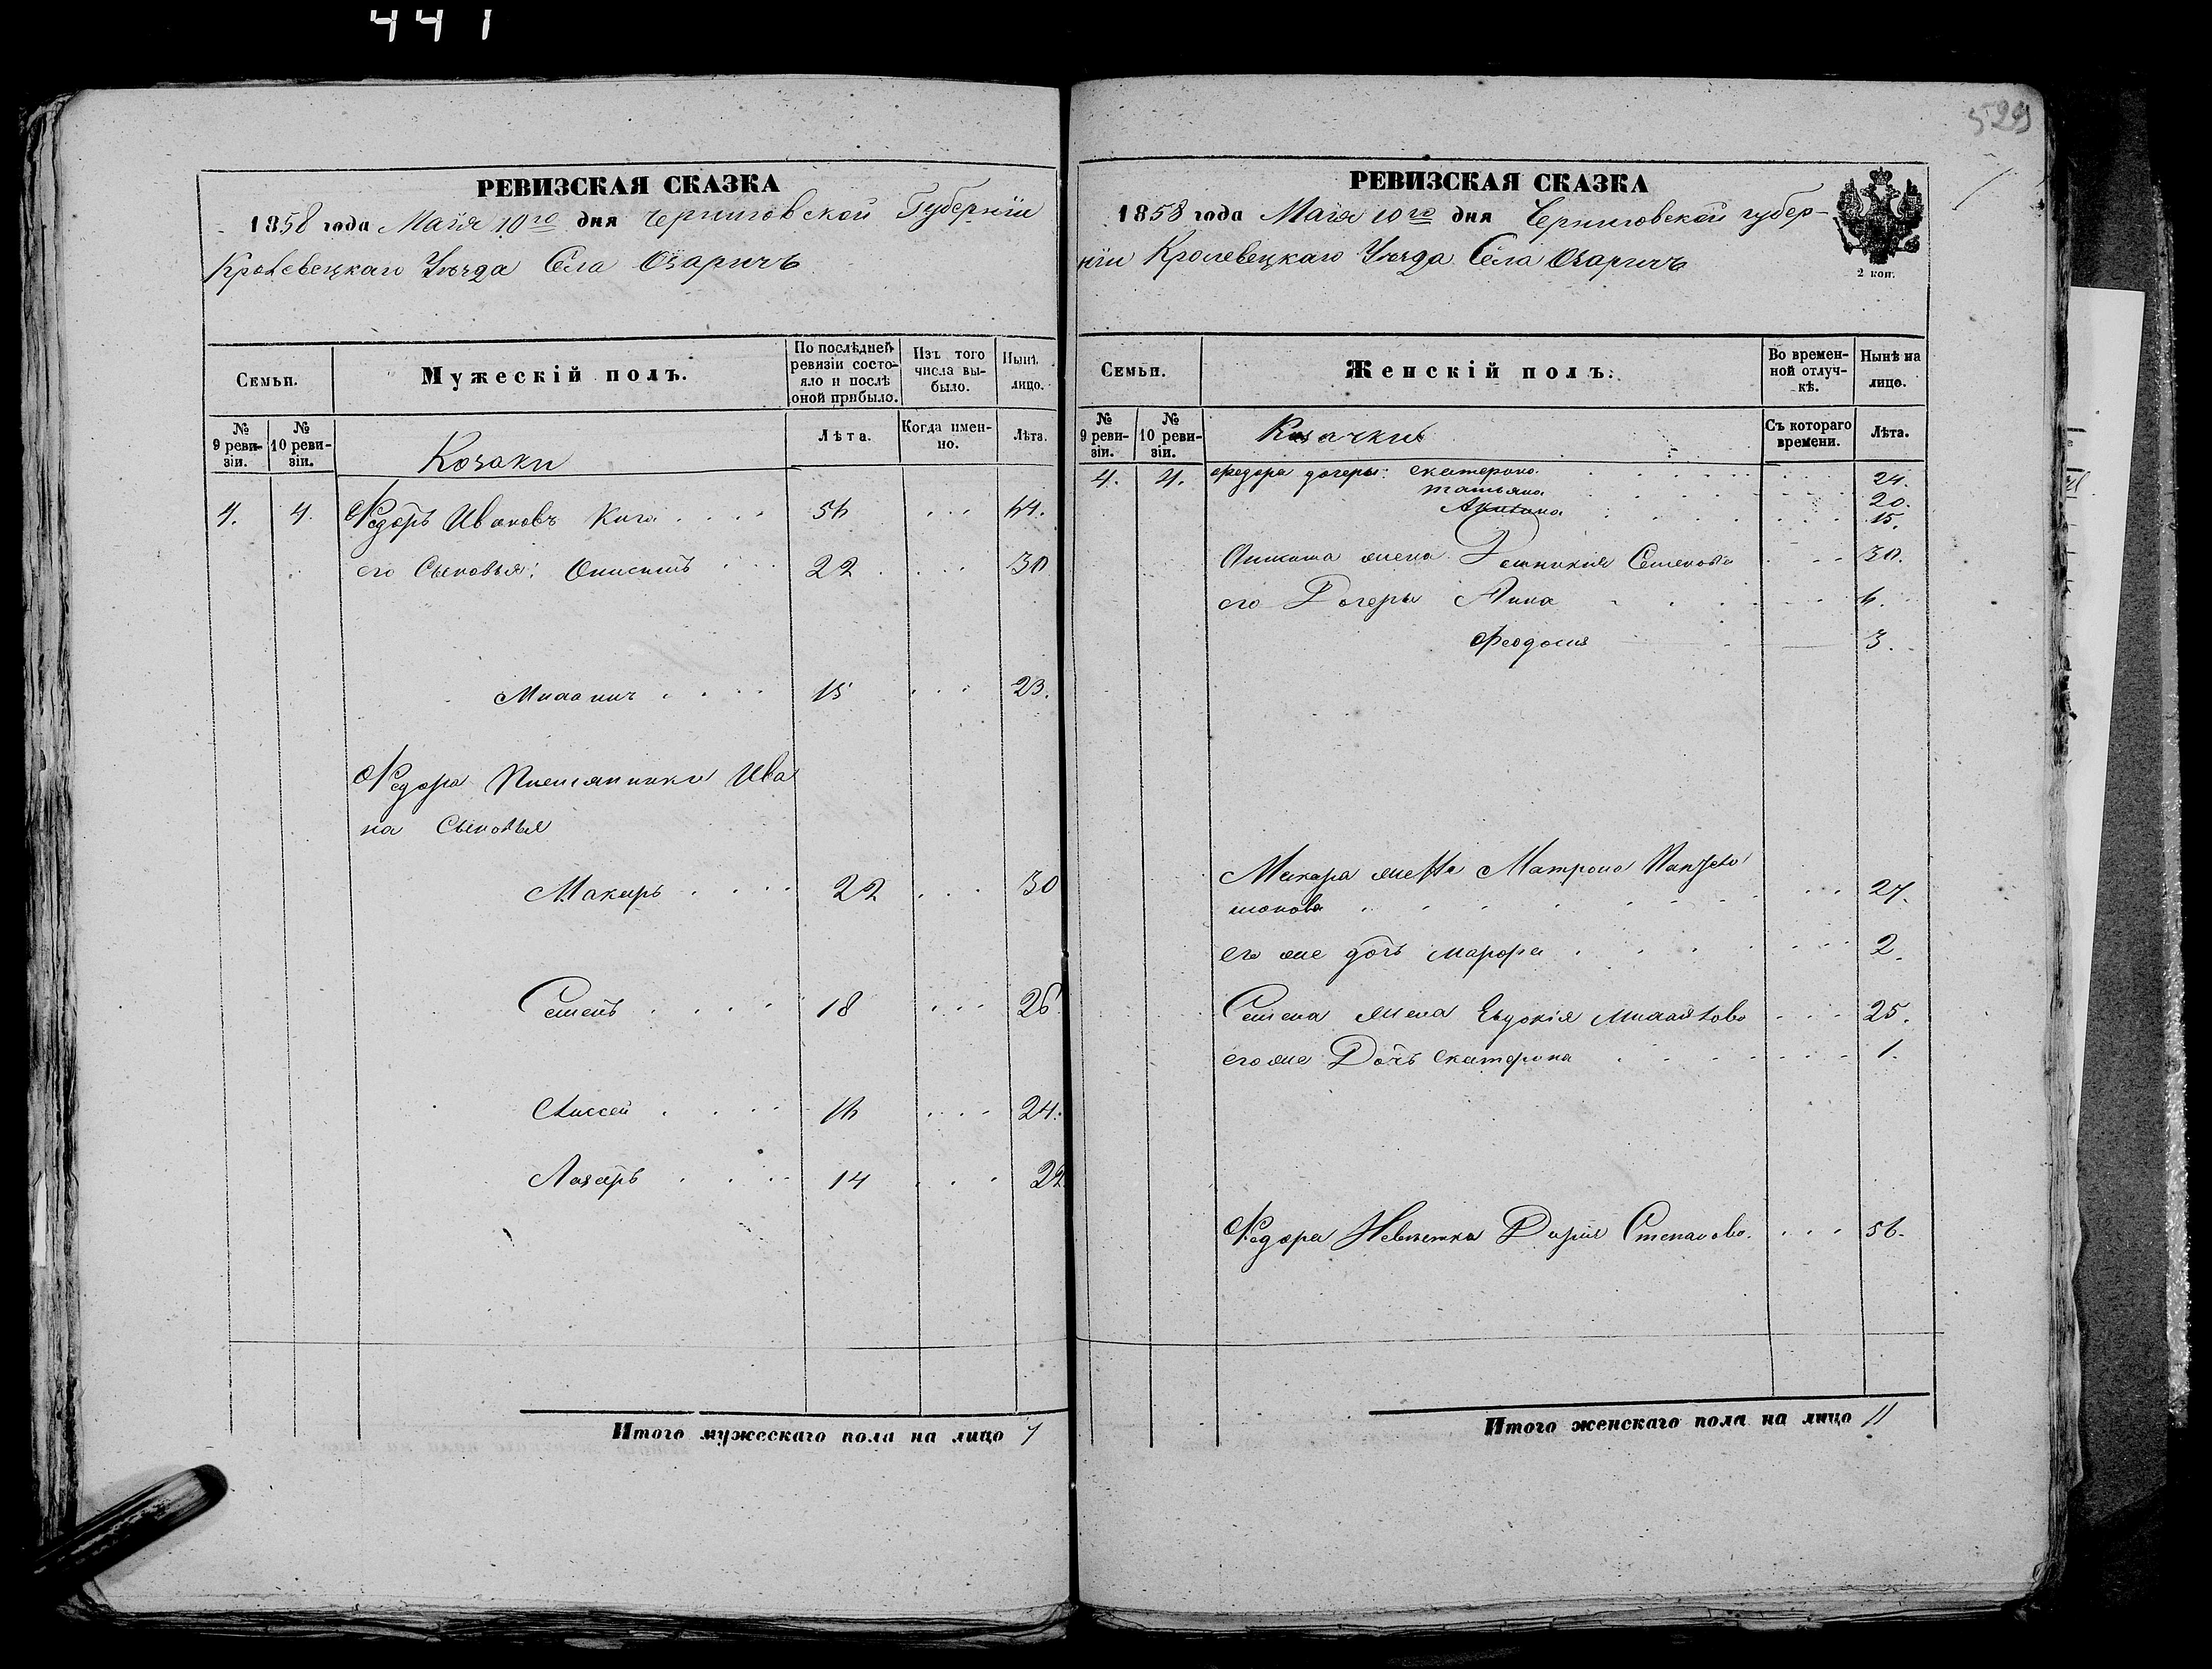 441
529
РЕВИЗСКАЯ СКАЗКА
1858 года Маія 10го дня Черниговской Губерніи
Кролевецкаго Уѣзда Села Озаричъ
Семьи.
Мужескій полъ.
По послѣдней ревизіи состояло и послѣ оной прибыло.
Изъ того числа выбыло.
Нынѣ лицо.
№ 9 ревизіи.
№ 10 ревизіи.
Козаки
Лѣта.
Когда именно.
Лѣта.
4. 4. Федоръ Ивановъ Кига 56 64.
его Сыновья: Онисимъ 22 30
15 23.
Федора Племянники Ива
на Сыновья
Макаръ 22 30
Семенъ 18 26
16 24.
Лазарь 14 22
Итого мужескаго пола на лицо 7
РЕВИЗСКАЯ СКАЗКА
1858 года Маія 10го дня Черниговской губер-
ніи Кролевецкаго Уѣзда Села Озаричъ
2 коп.
Семьи.
Женскій полъ.
Во временной отлучкѣ.
Нынѣ на лицо.
№ 9 ревизіи.
№ 10 ревизіи.
Козачки
Съ котораго времени.
Лѣта.
4. 4. Федора дочеры: Екатерина 24.
татьяна 20.
Акилина 15.
жена Семенова 30.
его Дочеры Анна 6.
Феодосия 3.
Макара жена Матрона
27.
его же дочь марфа 2.
Семена жена Евдокія 25.
его же Дочь Екатерина 1.
Федора Невѣстка Дарія Степанова. 56.
Итого женскаго пола на лицо 11